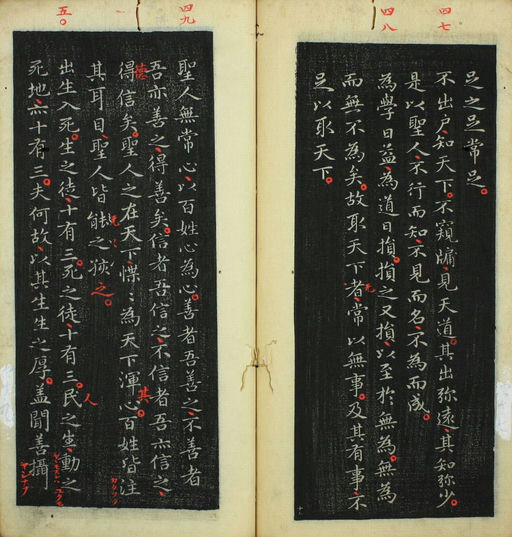 四七
四八
足之足常足。
不出戶、知天下。不窺牖、見天道。其出弥遠。其知弥少。
是以聖人、不行而知、不見而名、不為而成。
為學日益、為道日損。損之又損、以至於無為。無為
而無不為矣。故取天下者、常以無事。及其有事、不
足以取天下。
四九
五〇
聖人無常心、以百姓心為心。善者吾善之、不善者
吾亦善之、得善矣。信者吾信之、不信者吾亦信之、
德
得信矣。聖人之在天下、惵〻為天下渾心。百姓皆注
其
其耳目、聖人皆
之孩之。
出生入死。生之徒、十有三。死之徒、十有三。民之生、動之
人
死地、亦十有三。夫何故、以其生生之厚。蓋聞善攝